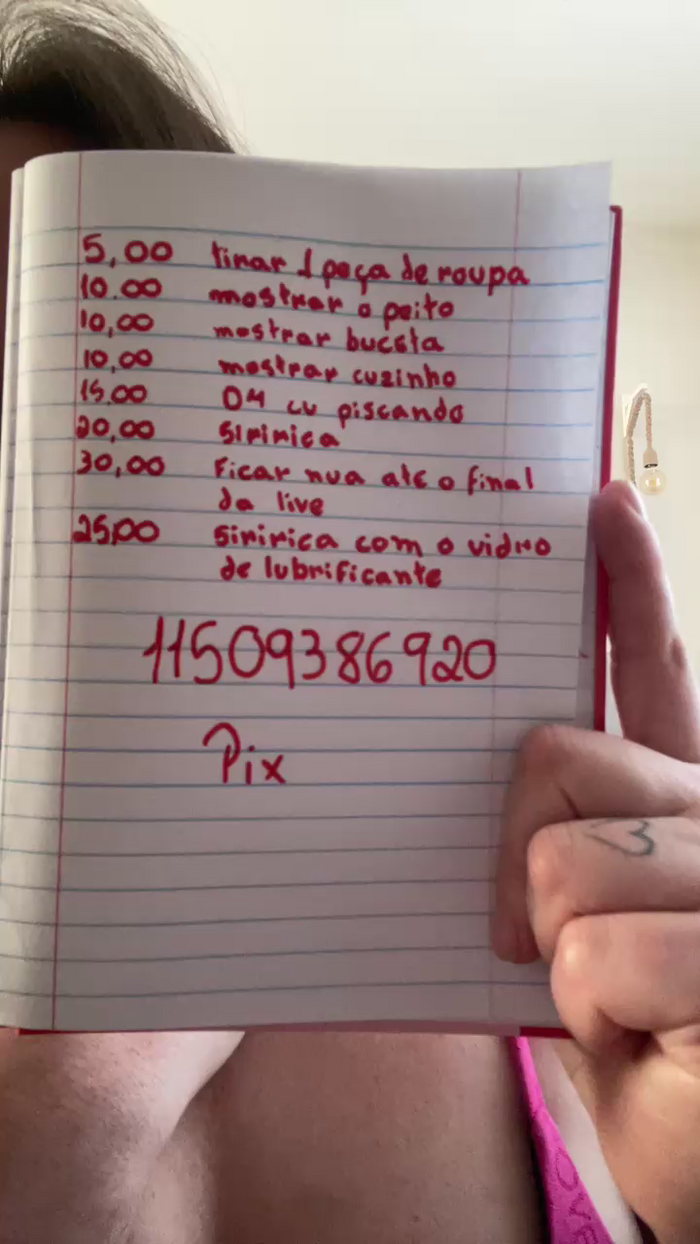 5,00 tirar 1 peça de roupa
10.00 mostrar o peito
10,00 mostrar buceta
10,00 mostrar cuzinho
15.00 D4 cu piscando
20,00 Siririca
30,00 Ficar nua até o final
da live
25,00 Siririca com o vidro
de lubrificante
11509386920
Pix